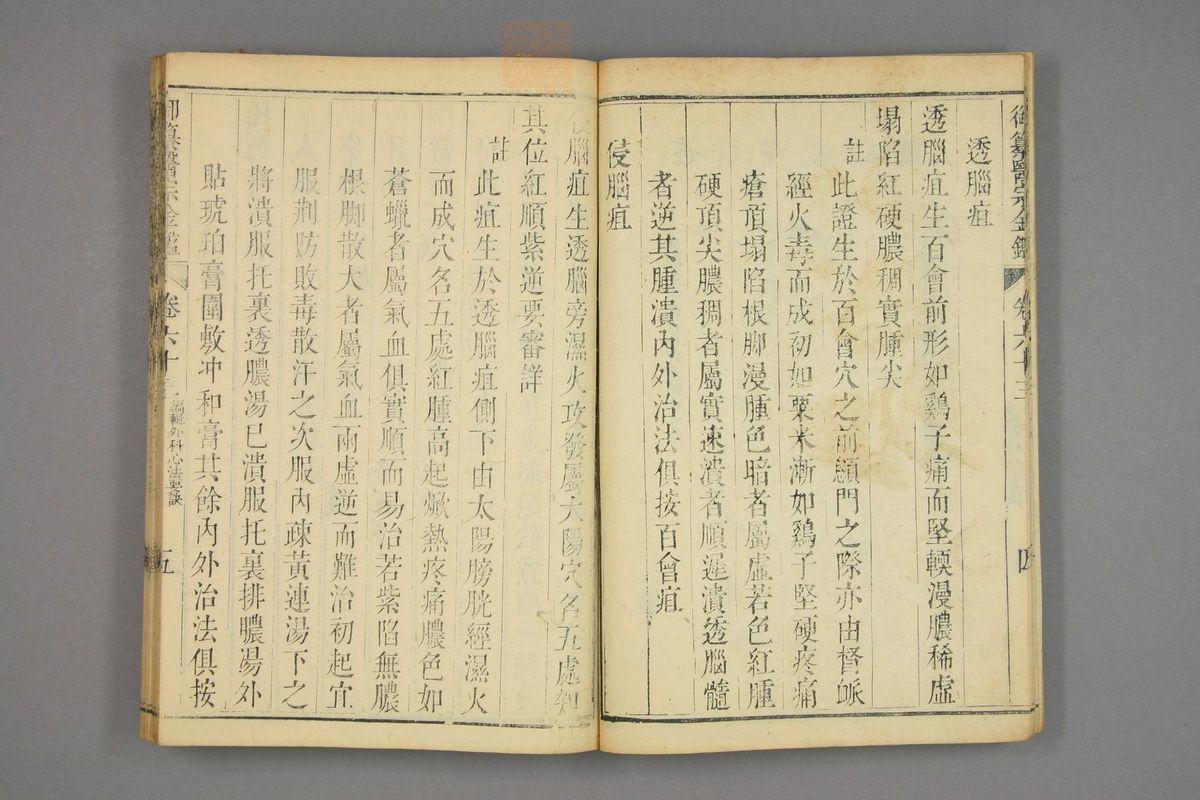 御纂醫宗金鑑 卷六十三 四
透腦疽
透腦疽生百會前形如鷄子痛而堅輭漫膿稀虛
塌陷紅硬膿稠實腫尖
註
此證生於百會穴之前顖門之際亦由督脈
經火毒而成初如粟米漸如鷄子堅硬疼痛
瘡頂塌陷根脚漫腫色暗者屬虛若色紅腫
硬頂尖膿稠者屬實速潰者順遲潰透腦髓
者逆其腫潰內外治法俱按百會疽
侵腦疽
侵腦疽生透腦旁濕火攻發屬太陽穴名五處知
其位紅順紫逆要審詳
註
此疽生於透腦疽側下由太陽膀胱經濕火
而成穴名五處紅腫高起焮熱疼痛膿色如
蒼蠟者屬氣血俱實順而易治若紫陷無膿
根脚散大者屬氣血兩虛逆而難治初起宜
服荆防敗毒散汗之次服內疎黃連湯下之
將潰服托裏透膿湯已潰服托裏排膿湯外
貼琥珀膏圍敷冲和膏其餘內外治法俱按
御纂醫宗金鑑 卷六十三 編輯外科心法要訣 五